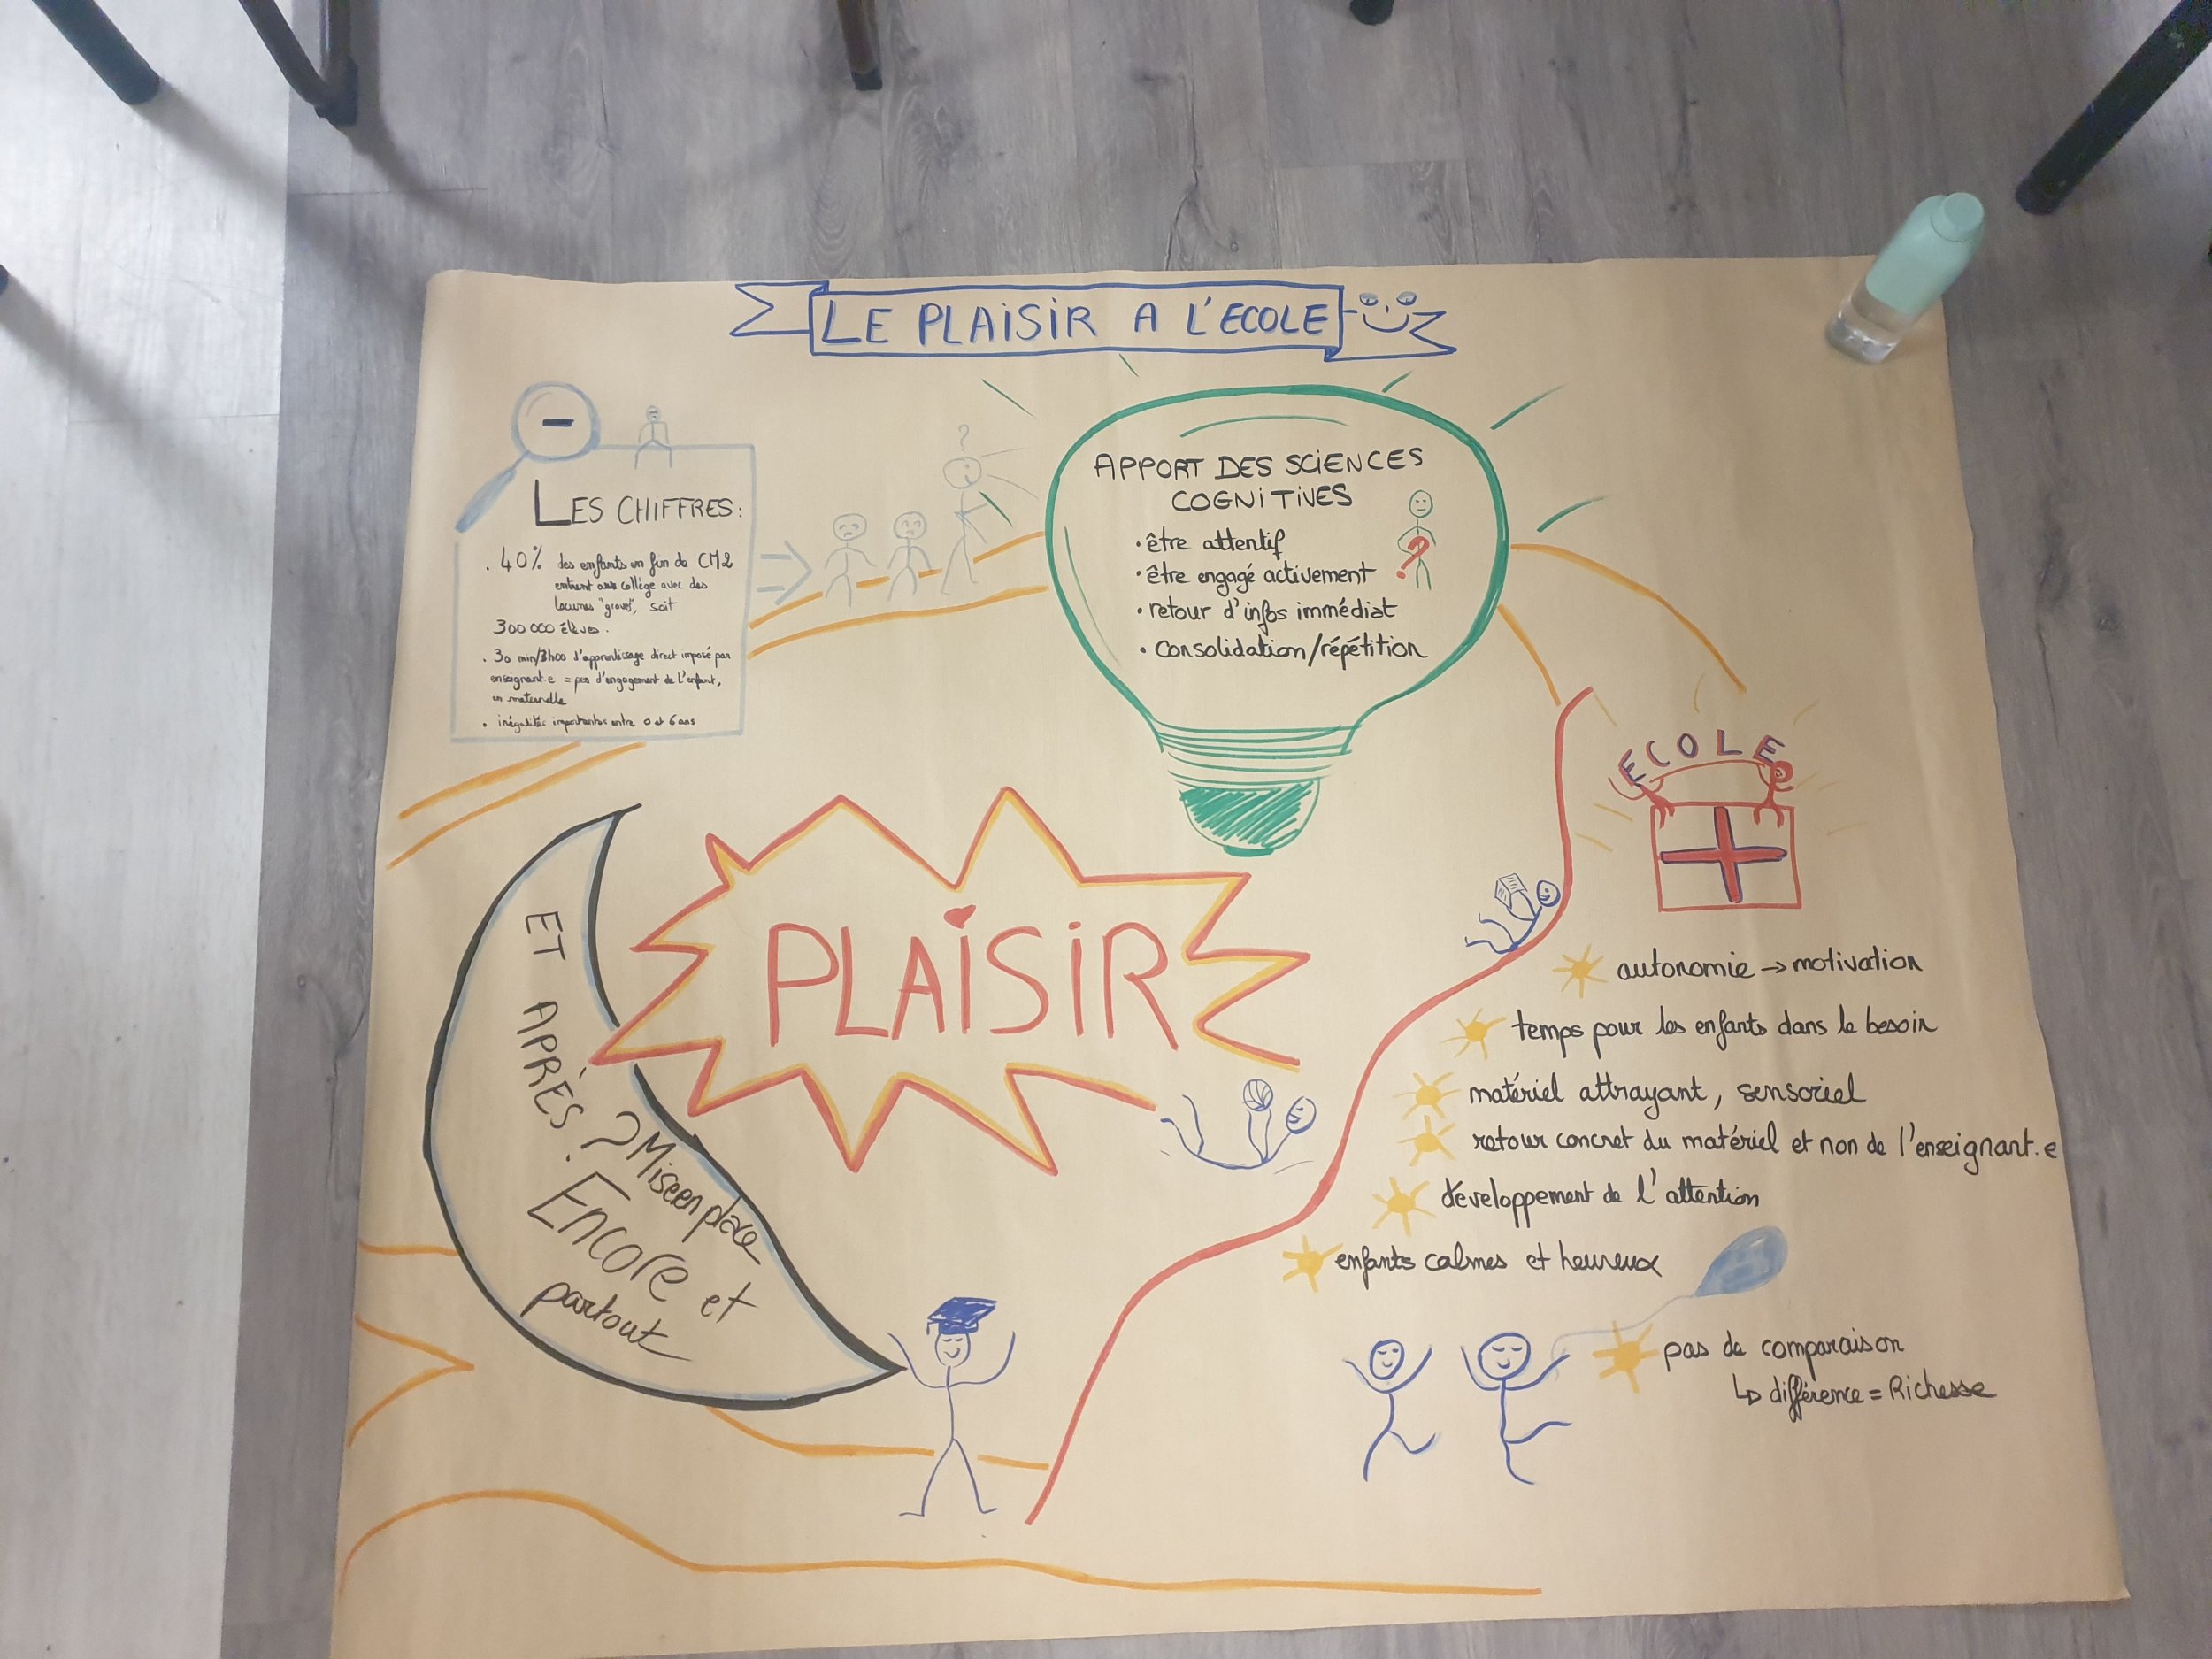 LE PLAiSiR A L'ECOLE
LES CHIFFRES:
. 40% des enfants en fin de CM2
entrent au collège avec des
lacunes "graves", soit
300 000 élèves.
. 30 min/3h00 d'apprentissage direct imposé par
enseignant.e = peu d'engagement de l'enfant,
en maternelle
. inégalités importantes entre 0 et 6 ans
?
APPORT DES SCiENCES
COGNiTiVES
• être attentif
• être engagé activement
• retour d'infos immédiat
• consolidation/répétition
?
ECOLE
autonomie → motivation
temps pour les enfants dans le besoin
matériel attrayant, sensoriel
retour concret du matériel et non de l'enseignant.e
développement de l'attention
enfants calmes et heureux
pas de comparaison
↳ différence = Richesse
PLAiSiR
ET APRÈS ?
Mise en place
Encore et
partout